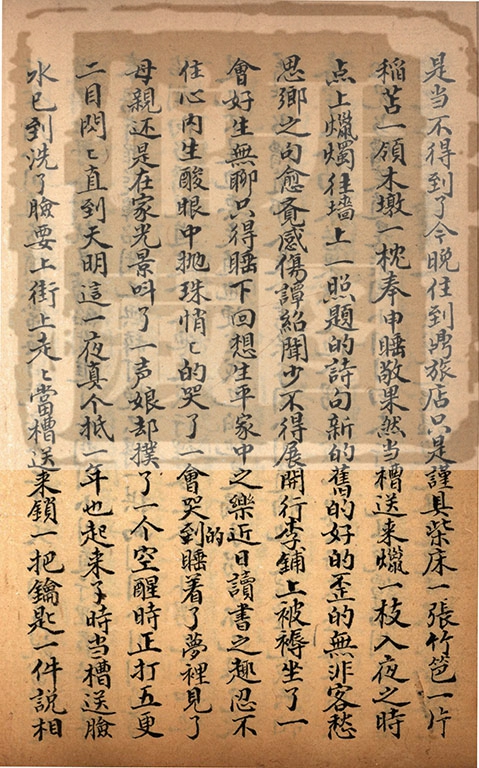 是当不得到了今晚住到鸡旅店只是謹具柴床一張竹笆一片
稲苫一領木墩一枕奉申睡敬果然当槽送来蠟一枝入夜之時
点上蠟燭往墻上一照題的詩句新的舊的好的歪的無非客愁
思鄉之句愈覔感傷譚紹聞少不得展開行李鋪上被褥坐了一
會好生無聊只得睡下回想生平家中之樂近日讀書之趣忍不
住心内生酸眼中抛珠悄〻的哭了一會哭到的睡着了夢裡見了
母親还是在家光景呌了一声娘却撲了一个空醒時正打五更
二目閃〻直到天明這一夜真个抵一年也起来了時当槽送臉
水已到洗了臉要上街上走〻當槽送来鎖一把鑰匙一件說相